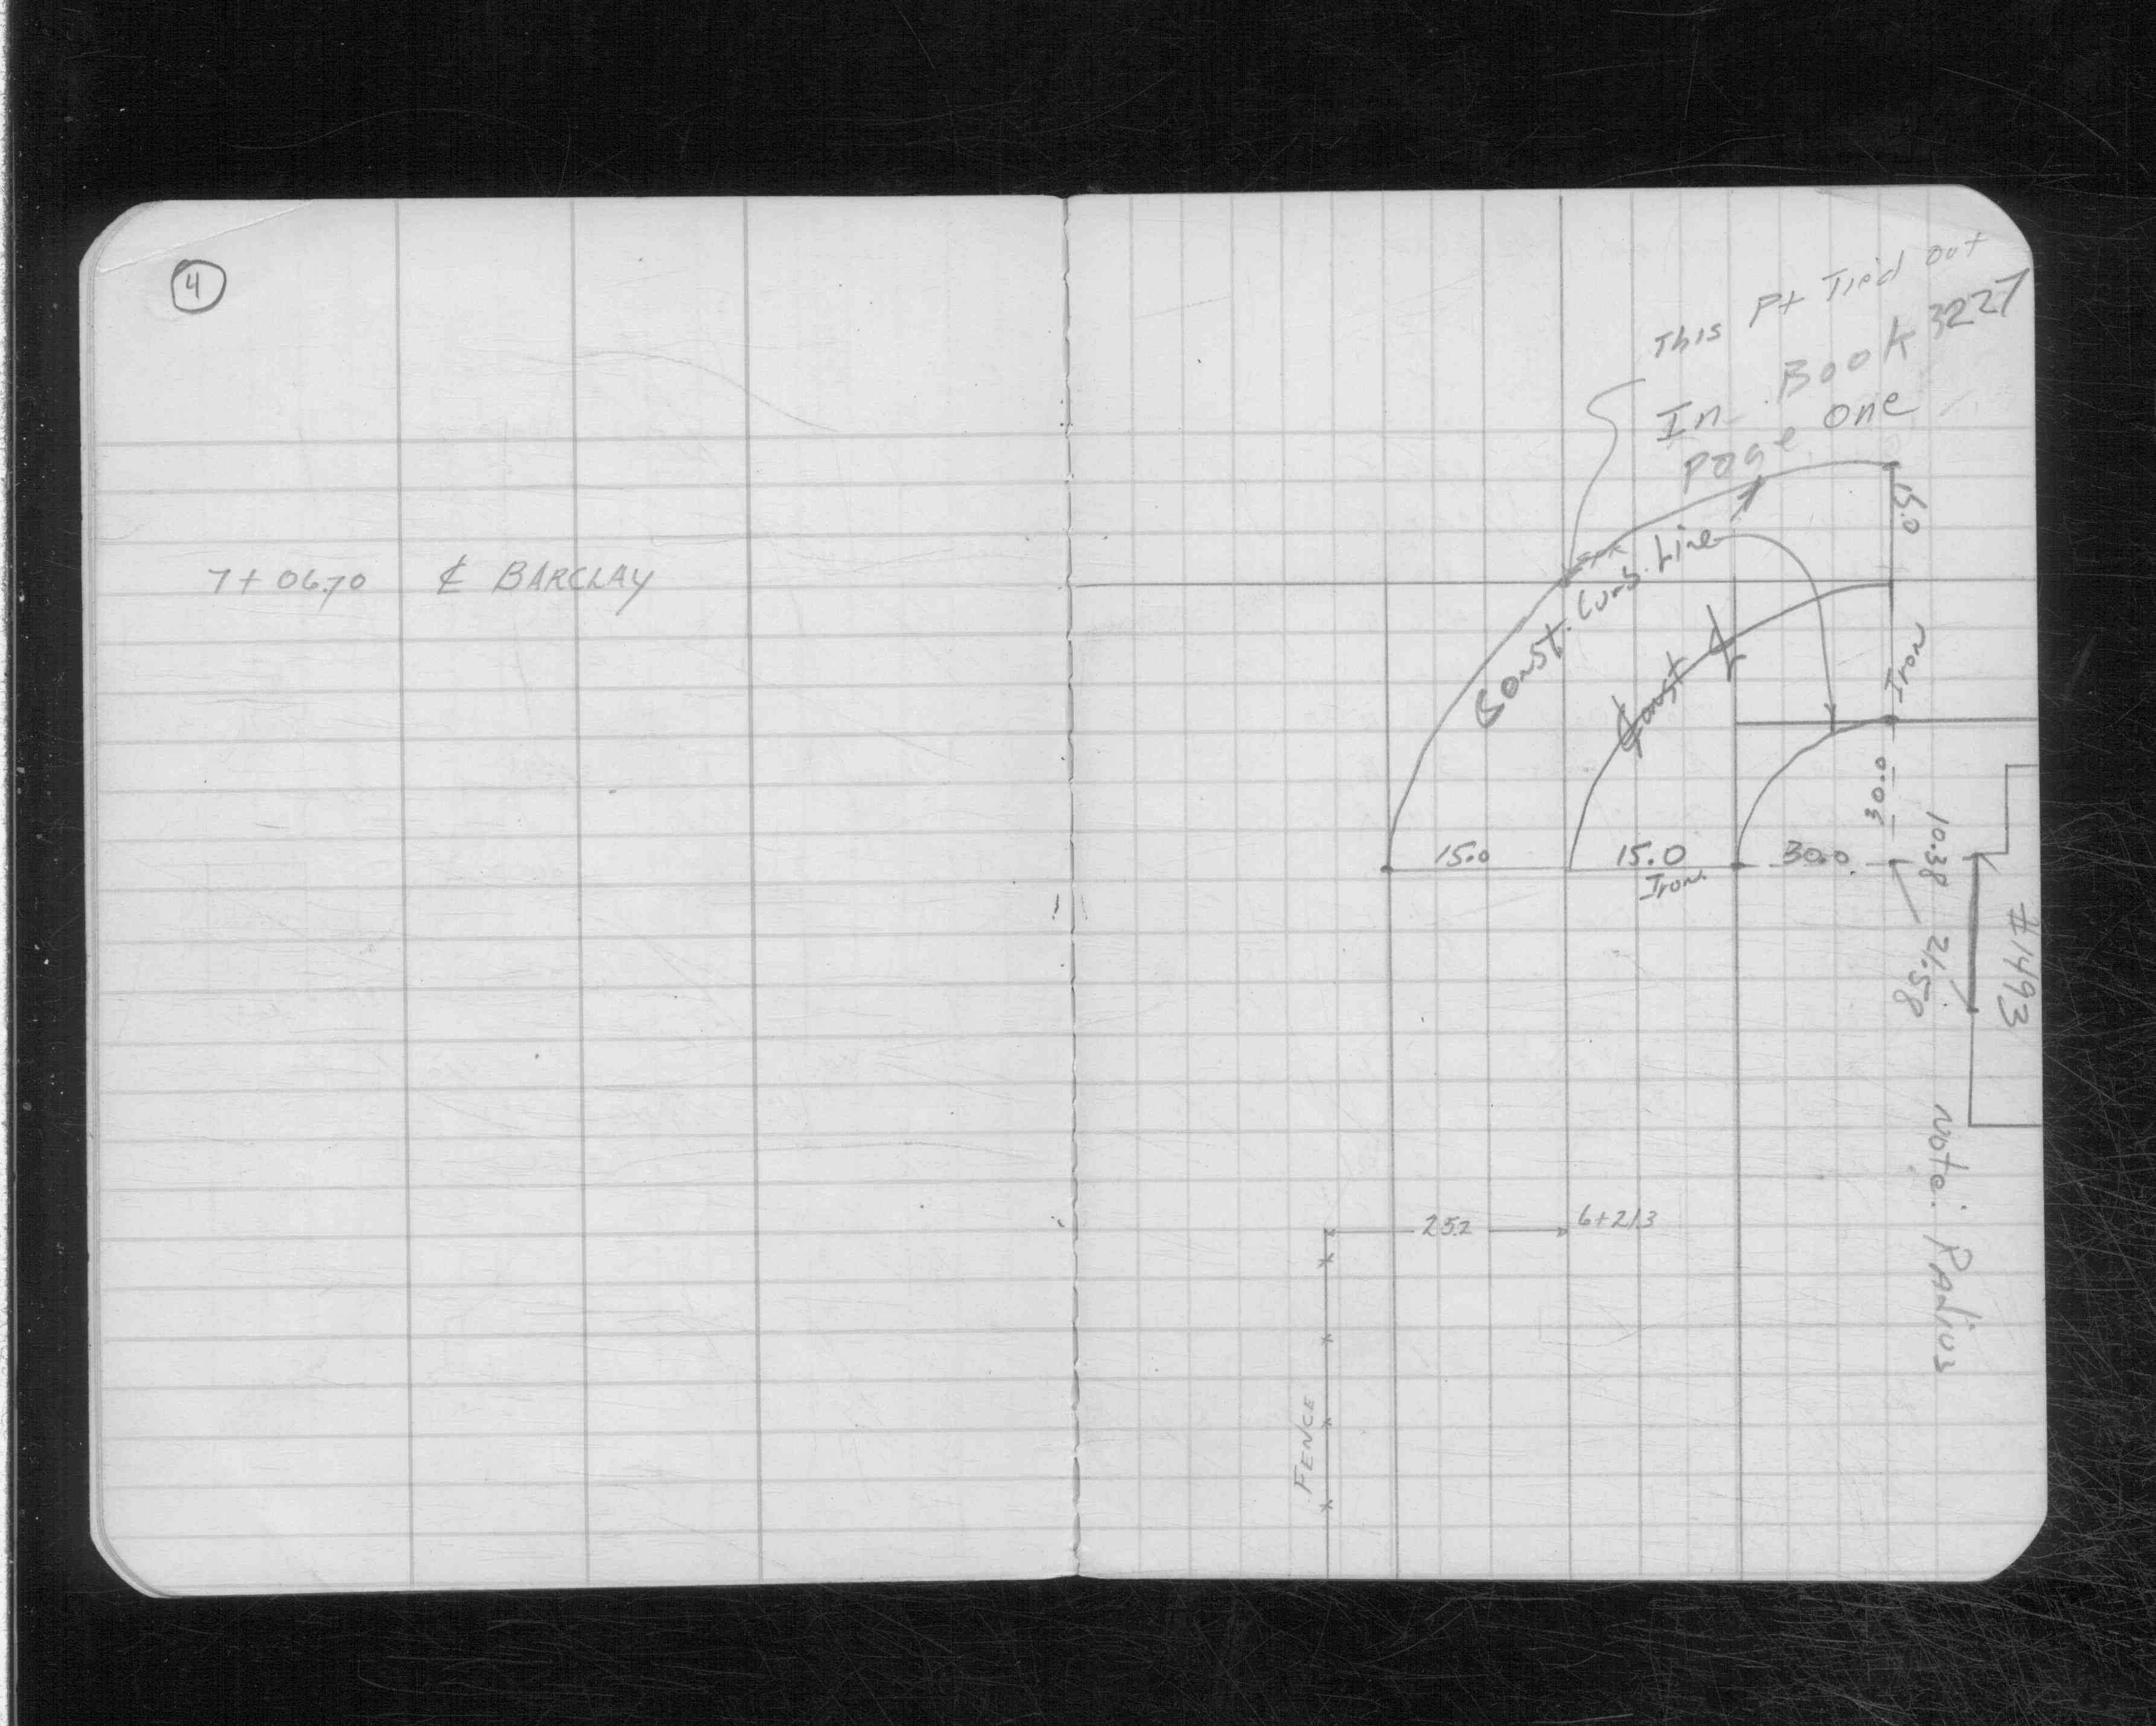 4
7+06.70 ℄ BARCLAY
This Pt Tied out
In Book 3227
Page one
15.0
Const. Curb. Line
Const ℄
Iron
30.0
15.0
15.0
30.0
Iron
10.38
21.58
#1493
Note: Radius
25.2
6+21.3
FENCE